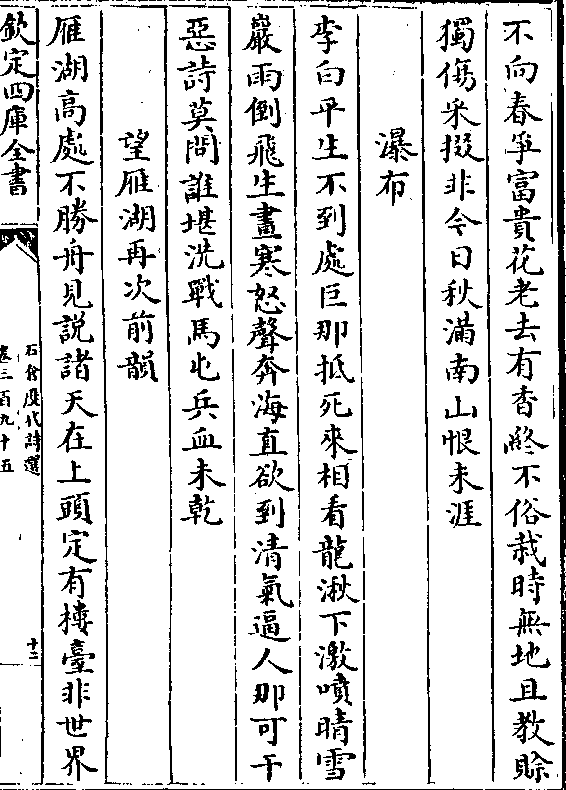 不向春爭富貴花老去有香終不俗栽時無地且教賒
獨傷采掇非今日秋滿南山恨未涯
瀑布
李白平生不到處巨那抵死來相看龍湫下激噴晴雪
巖雨倒飛生晝寒怒聲奔海直欲到清氣逼人那可干
惡詩莫問誰堪洗戰馬屯兵血未乾
望雁湖再次前韻
雁湖高處不勝舟見說諸天在上頭定有樓臺非世界
欽定四庫全書
石倉歷代詩選
卷三百九十五
十二